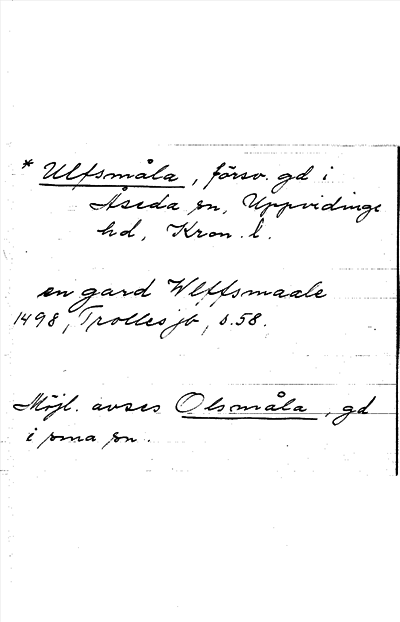 * Ulfsmåla, försv. gd i
Åseda sn, Uppvidinge
hd, Kron. l.
en gard Wlffsmaale
1498, Trolles jb, s.58.
Möjl. avses Olsmåla, gd
i sma sn.